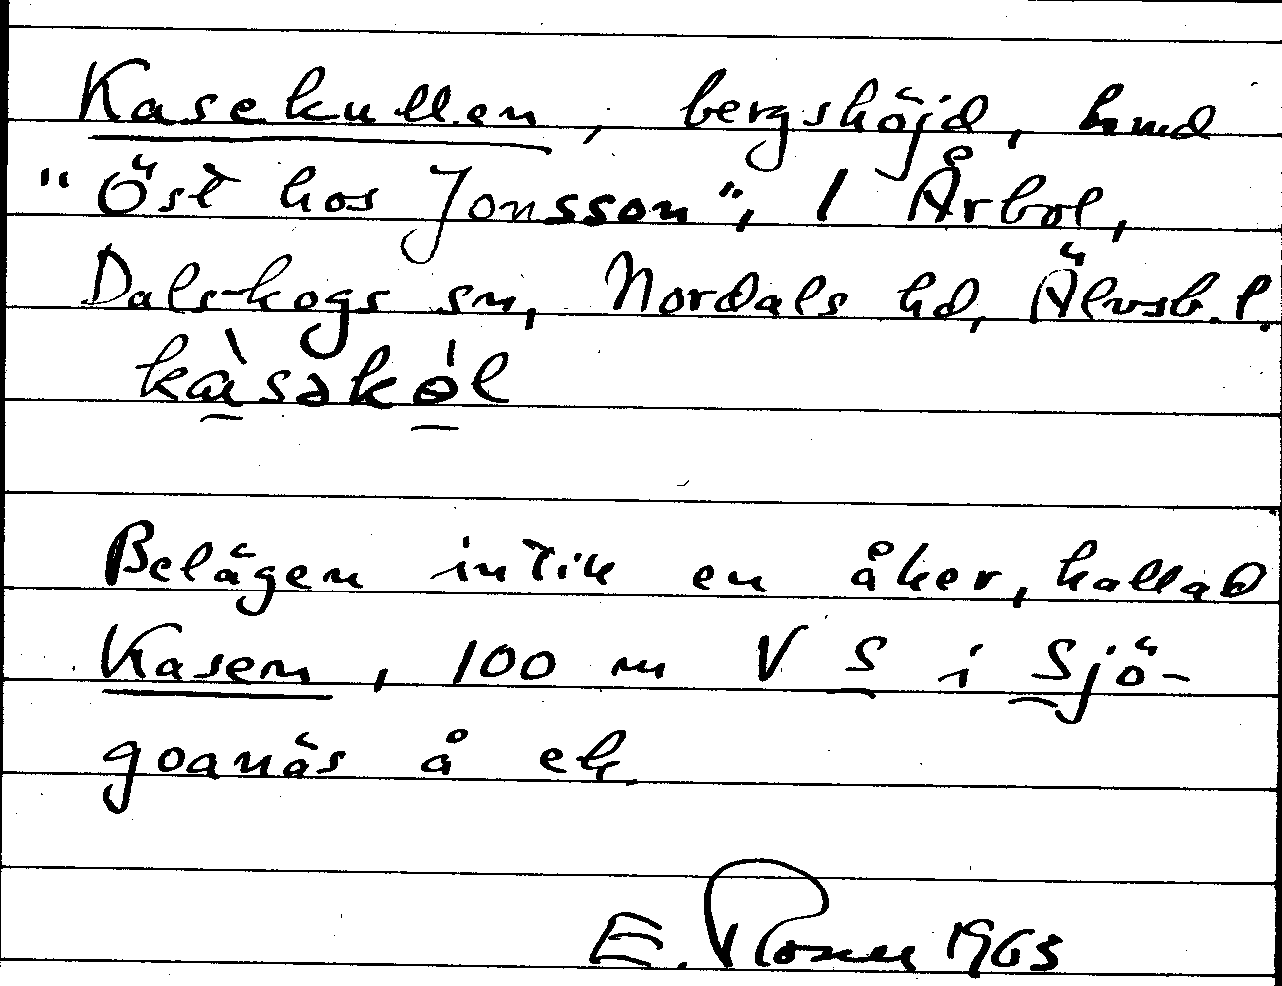 Kasekullen, bergshöjd, hmd
"Öst hos Jonsson", 1 Årbol,
Dalskogs sn, Nordals hd, Älvsb. l.
kàsəkól
Belägen intill en åker, kallad
Kasen, 100 m V S i Sjö-
goanäs å ek.
E. 1963